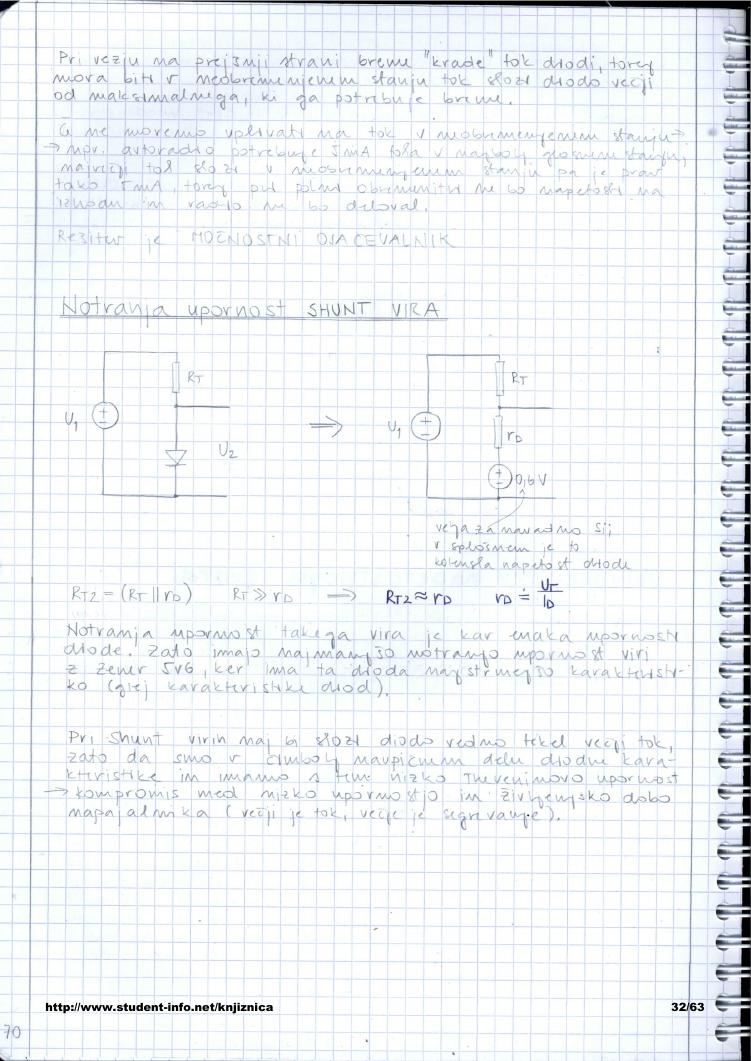 Pri vezju na prejšnji strani breme "krade" tok diodi, torej
mora biti v neobremenjenem stanju tok skozi diodo večji
od maksimalnega, ki ga potrebuje breme.
Če ne moremo vplivati na tok v neobremenjenem stanju →
→ npr. avtoradio potrebuje 5mA toka v najbolj glasnem stanju,
največji tok skozi v neobremenjenem stanju pa je prav
tako 5mA, torej pri polni obremenitvi ne bo napetosti na
izhodu in radio ne bo deloval.
Rešitev je MOČNOSTNI OJAČEVALNIK
Notranja upornost SHUNT VIRA
RT
U1
U2
⇒
RT
U1
rD
0,6V
velja za navadno Si;
v splošnem je to
kolenska napetost diode
RT2 = (RT || rD) RT >> rD → RT2 ≈ rD rD ≐ UT / ID
Notranja upornost takega vira je kar enaka upornosti
diode. Zato imajo najmanjšo notranjo upornost viri
z zener 5V6, ker ima ta dioda najstrmejšo karakteristi-
ko (glej karakteristike diod).
Pri shunt virih naj bi skozi diodo vedno tekel večji tok,
zato da smo v čimbolj navpičnem delu diodne kara-
kteristike in imamo s tem nizko Thevenimovo upornost
→ kompromis med nizko upornostjo in življenjsko dobo
napajalnika (večji je tok, večje je segrevanje).
http://www.student-info.net/knjiznica 32/63
70